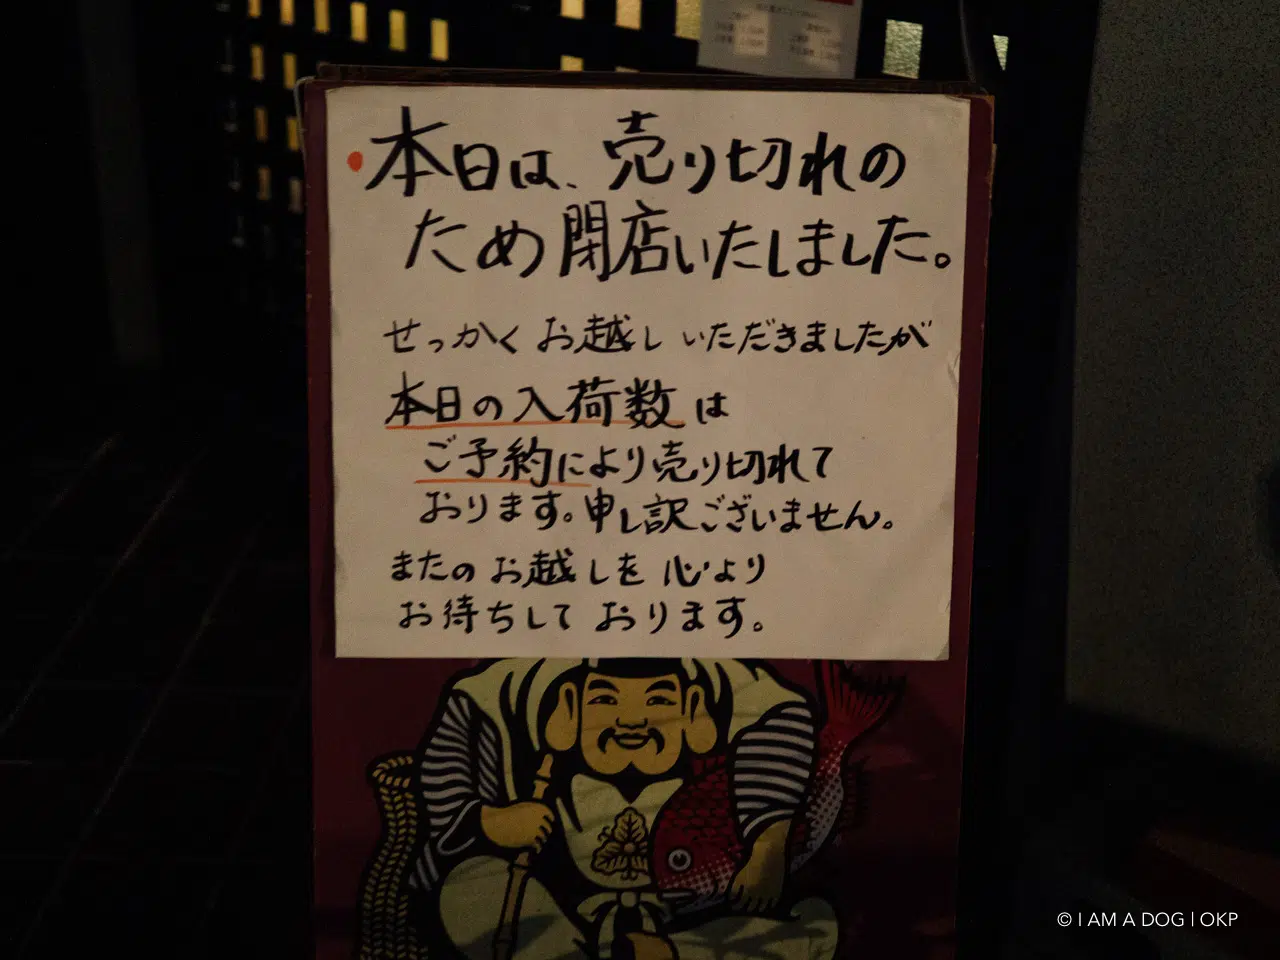 ・本日は、売り切れの
ため閉店いたしました。
せっかくお越しいただきましたが
本日の入荷数は
ご予約により売り切れて
おります。申し訳ございません。
またのお越しを心より
お待ちしております。
© I AM A DOG | OKP